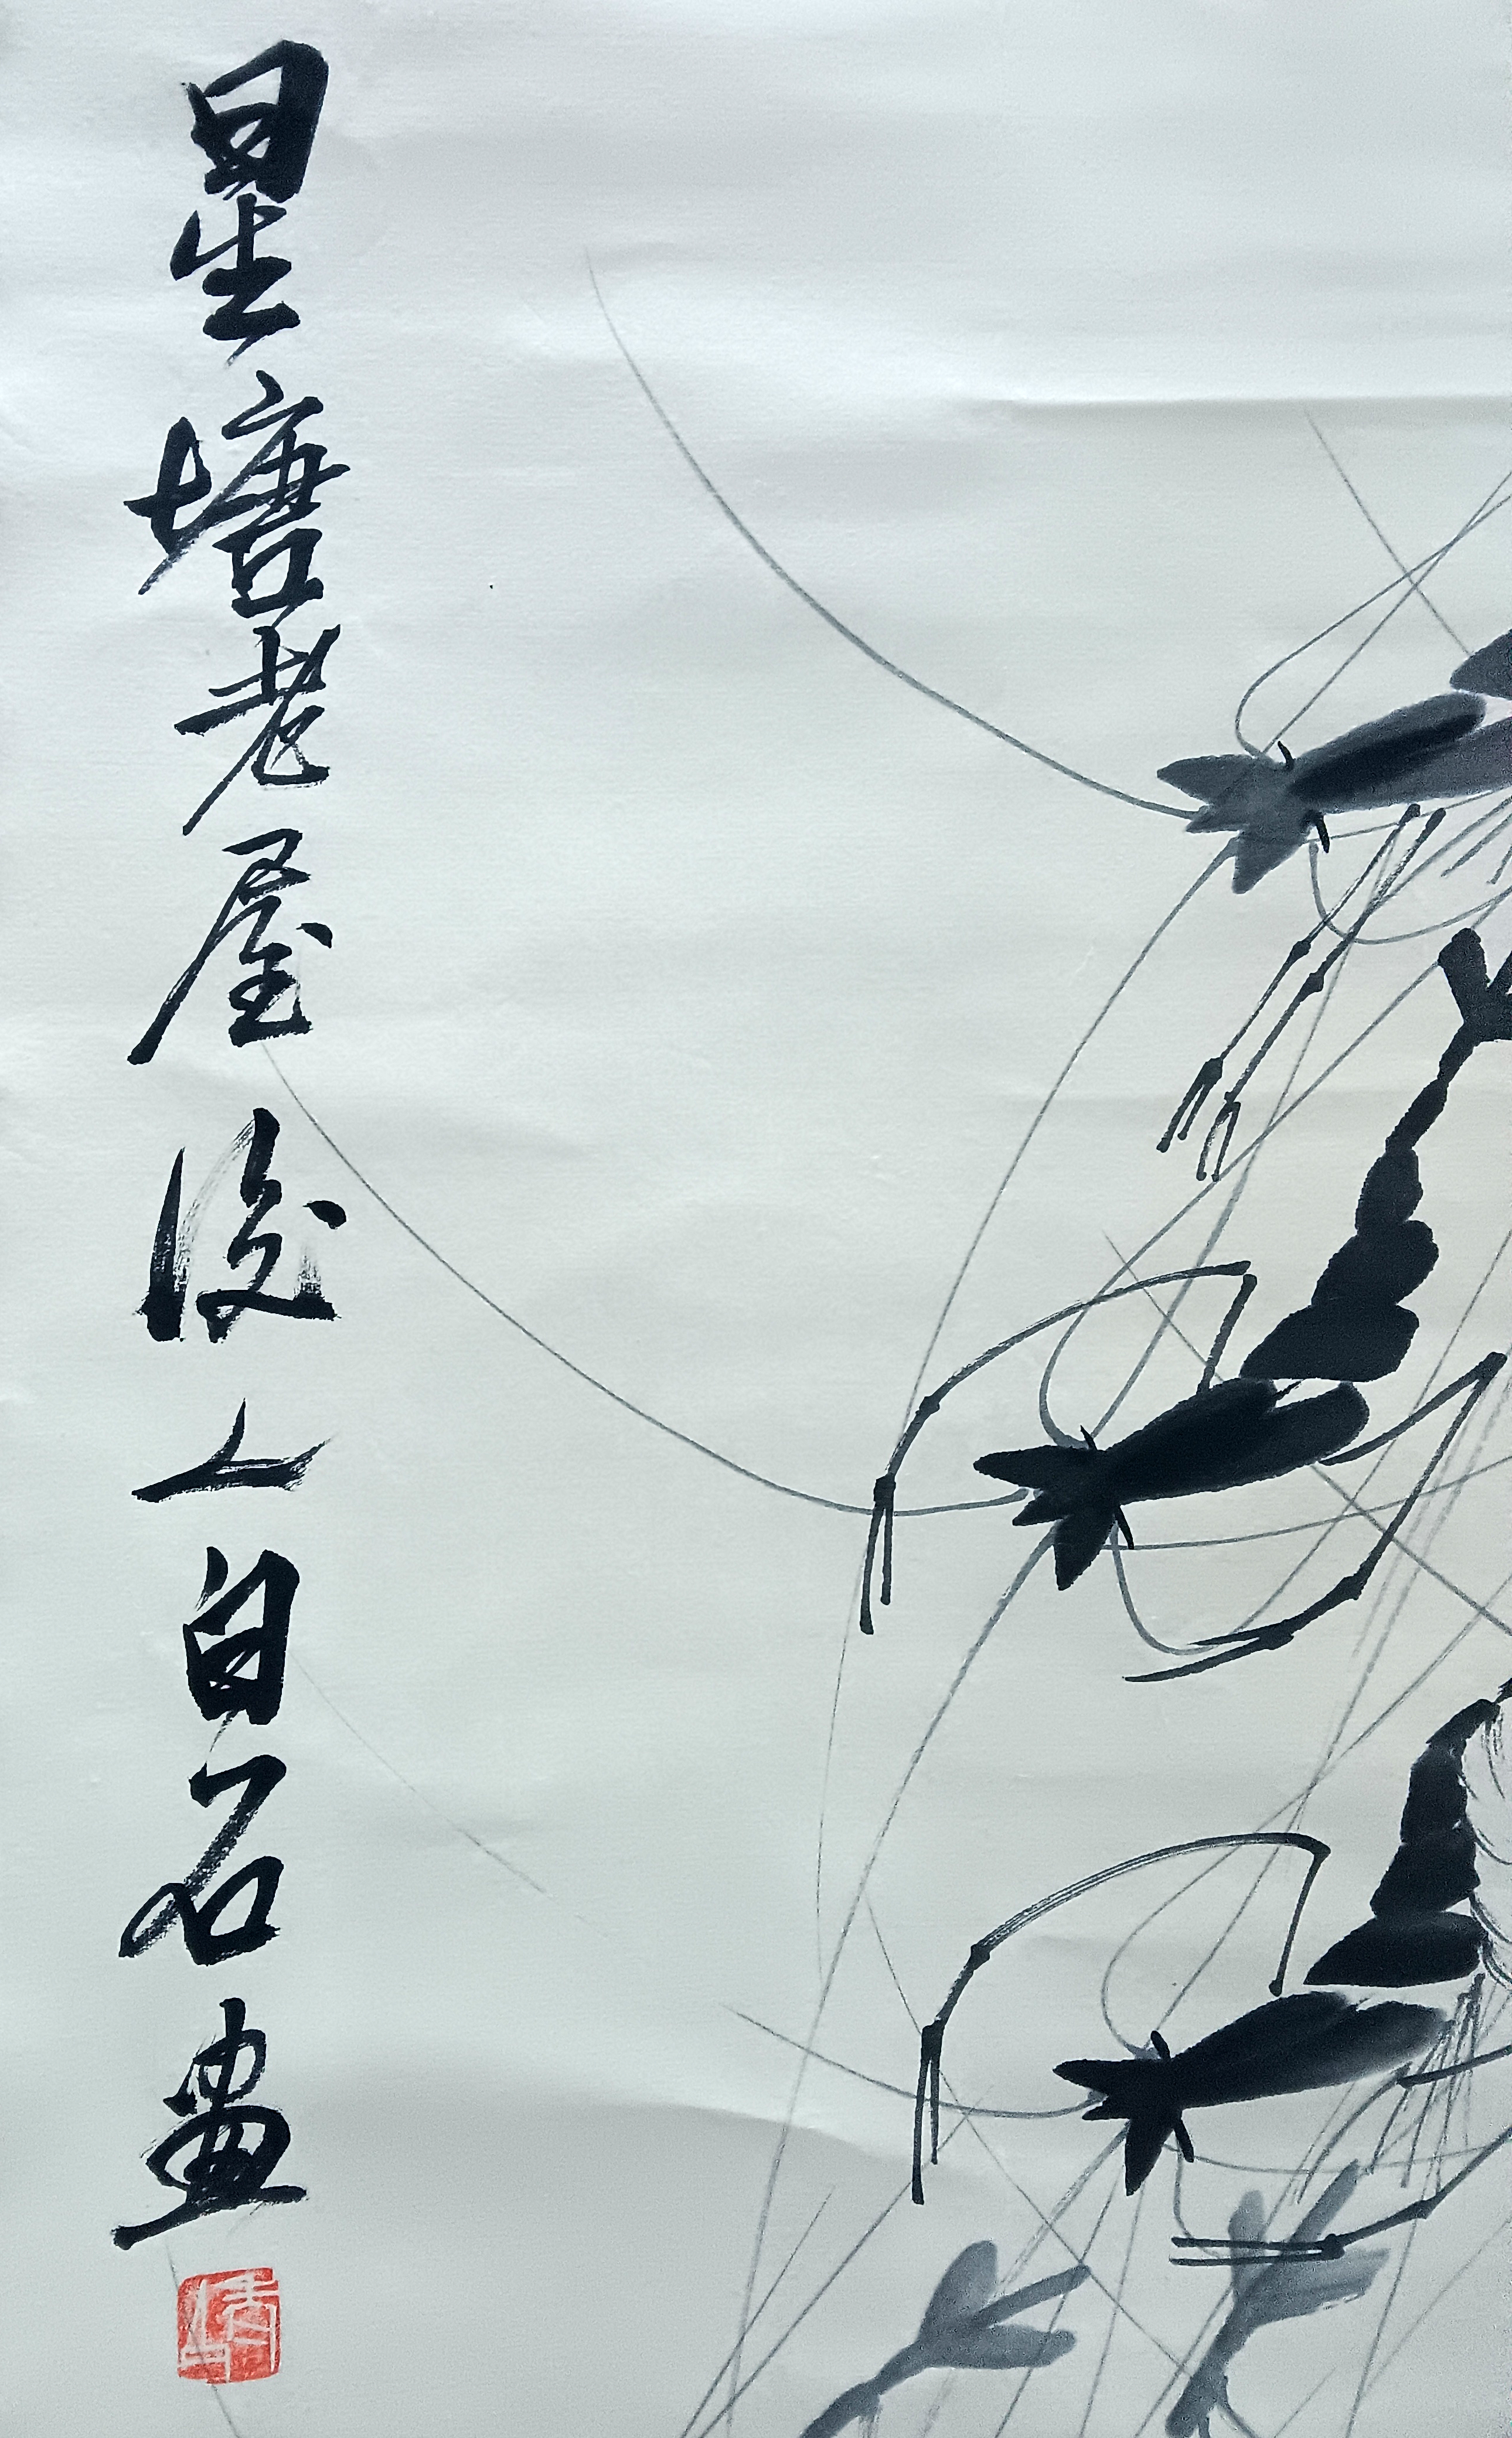 星塘老屋後人白石畫